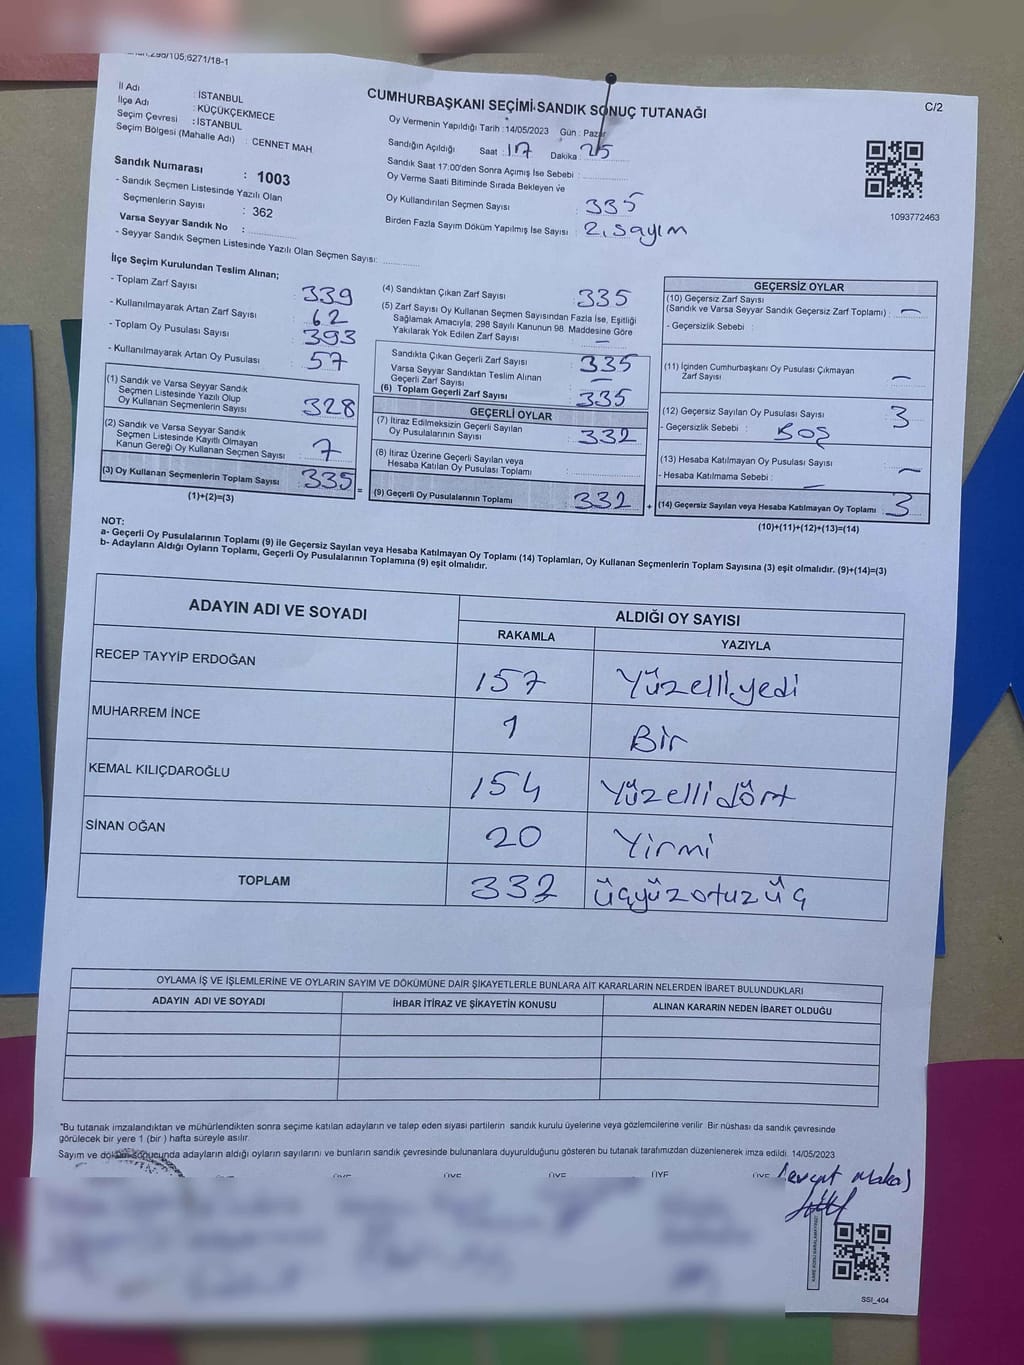 298/105;6271/18-1
C/2
İl Adı : İSTANBUL
İlçe Adı : KÜÇÜKÇEKMECE
Seçim Çevresi : İSTANBUL
Seçim Bölgesi (Mahalle Adı) : CENNET MAH
Sandık Numarası : 1003
- Sandık Seçmen Listesinde Yazılı Olan
Seçmenlerin Sayısı : 362
Varsa Seyyar Sandık No :
- Seyyar Sandık Seçmen Listesinde Yazılı Olan Seçmen Sayısı:
CUMHURBAŞKANI SEÇİMİ SANDIK SONUÇ TUTANAĞI
Oy Vermenin Yapıldığı Tarih : 14/05/2023 Gün : Pazar
Sandığın Açıldığı Saat : 17 Dakika : 25
Sandık Saat 17:00'den Sonra Açımış İse Sebebi :
Oy Verme Saati Bitiminde Sırada Bekleyen ve
Oy Kullandırılan Seçmen Sayısı : 335
Birden Fazla Sayım Döküm Yapılmış İse Sayısı : 2. Sayım
1093772463
İlçe Seçim Kurulundan Teslim Alınan;
- Toplam Zarf Sayısı : 339
- Kullanılmayarak Artan Zarf Sayısı : 62
- Toplam Oy Pusulası Sayısı : 393
- Kullanılmayarak Artan Oy Pusulası : 57
(1) Sandık ve Varsa Seyyar Sandık
Seçmen Listesinde Yazılı Olup
Oy Kullanan Seçmenlerin Sayısı : 328
(2) Sandık ve Varsa Seyyar Sandık
Seçmen Listesinde Kayıtlı Olmayan
Kanun Gereği Oy Kullanan Seçmen Sayısı : 7
(3) Oy Kullanan Seçmenlerin Toplam Sayısı : 335
(1)+(2)=(3)
(4) Sandıktan Çıkan Zarf Sayısı : 335
(5) Zarf Sayısı Oy Kullanan Seçmen Sayısından Fazla İse, Eşitliği
Sağlamak Amacıyla; 298 Sayılı Kanunun 98. Maddesine Göre
Yakılarak Yok Edilen Zarf Sayısı : —
Sandıkta Çıkan Geçerli Zarf Sayısı : 335
Varsa Seyyar Sandıktan Teslim Alınan
Geçerli Zarf Sayısı : —
(6) Toplam Geçerli Zarf Sayısı : 335
GEÇERLİ OYLAR
(7) İtiraz Edilmeksizin Geçerli Sayılan
Oy Pusulalarının Sayısı : 332
(8) İtiraz Üzerine Geçerli Sayılan veya
Hesaba Katılan Oy Pusulası Toplamı :
= (9) Geçerli Oy Pusulalarının Toplamı : 332 +
GEÇERSİZ OYLAR
(10) Geçersiz Zarf Sayısı
(Sandık ve Varsa Seyyar Sandık Geçersiz Zarf Toplamı) : —
- Geçersizlik Sebebi :
(11) İçinden Cumhurbaşkanı Oy Pusulası Çıkmayan
Zarf Sayısı : —
(12) Geçersiz Sayılan Oy Pusulası Sayısı : 3
- Geçersizlik Sebebi : BOŞ
(13) Hesaba Katılmayan Oy Pusulası Sayısı : —
- Hesaba Katılmama Sebebi : —
(14) Geçersiz Sayılan veya Hesaba Katılmayan Oy Toplamı : 3
(10)+(11)+(12)+(13)=(14)
NOT:
a- Geçerli Oy Pusulalarının Toplamı (9) ile Geçersiz Sayılan veya Hesaba Katılmayan Oy Toplamı (14) Toplamları, Oy Kullanan Seçmenlerin Toplam Sayısına (3) eşit olmalıdır. (9)+(14)=(3)
b- Adayların Aldığı Oyların Toplamı, Geçerli Oy Pusulalarının Toplamına (9) eşit olmalıdır.
ADAYIN ADI VE SOYADI ALDIĞI OY SAYISI
RAKAMLA YAZIYLA
RECEP TAYYİP ERDOĞAN 157 Yüzelliyedi
MUHARREM İNCE 1 Bir
KEMAL KILIÇDAROĞLU 154 Yüzellidört
SİNAN OĞAN 20 Yirmi
TOPLAM 332 üçyüzotuzüç
OYLAMA İŞ VE İŞLEMLERİNE VE OYLARIN SAYIM VE DÖKÜMÜNE DAİR ŞİKAYETLERLE BUNLARA AİT KARARLARIN NELERDEN İBARET BULUNDUKLARI
ADAYIN ADI VE SOYADI İHBAR İTİRAZ VE ŞİKAYETİN KONUSU ALINAN KARARIN NEDEN İBARET OLDUĞU
*Bu tutanak imzalandıktan ve mühürlendikten sonra seçime katılan adayların ve talep eden siyasi partilerin sandık kurulu üyelerine veya gözlemcilerine verilir. Bir nüshası da sandık çevresinde
görülecek bir yere 1 (bir) hafta süreyle asılır.
Sayım ve döküm sonucunda adayların aldığı oyların sayılarını ve bunların sandık çevresinde bulunanlara duyurulduğunu gösteren bu tutanak tarafımızdan düzenlenerek imza edildi. 14/05/2023
ÜYE ÜYE ÜYE ÜYE ÜYE
SSI_404